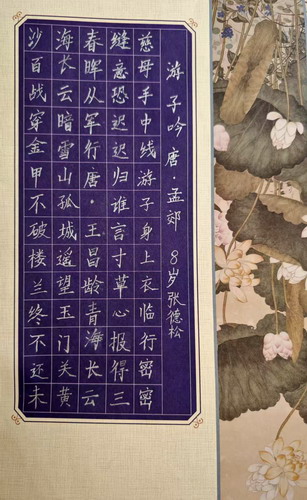 游子吟唐·孟郊 8岁张德松
慈母手中线游子身上衣临行密密
缝意恐迟迟归谁言寸草心报得三
春晖从军行唐·王昌龄青海长云
海长云暗雪山孤城遥望玉门关黄
沙百战穿金甲不破楼兰终不还未